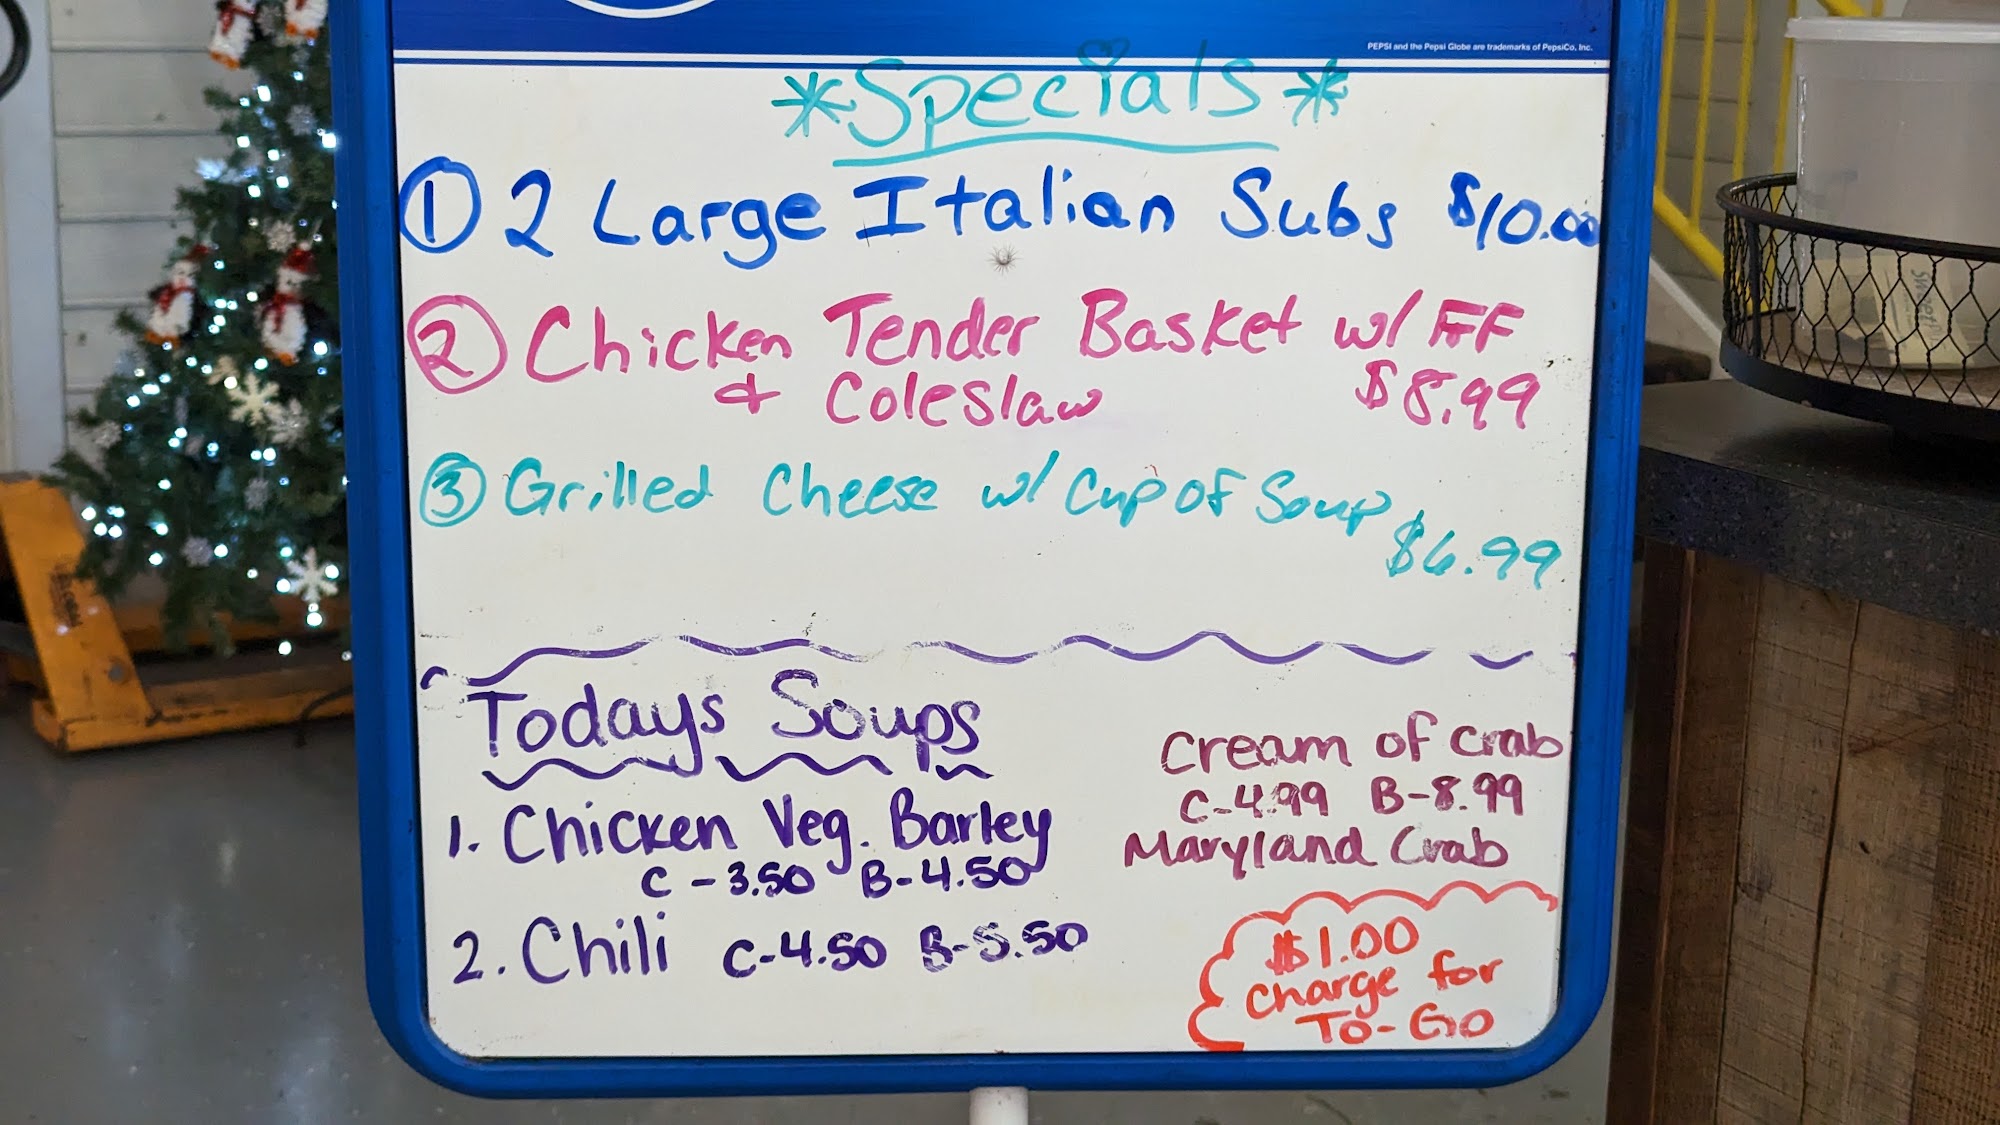 PEPSI and the Pepsi Globe are trademarks of PepsiCo, Inc.
*Specials*
① 2 Large Italian Subs $10.00
② Chicken Tender Basket w/ FF
& Coleslaw $8.99
③ Grilled Cheese w/ Cup of Soup
$6.99
Todays Soups
1. Chicken Veg. Barley
C-3.50 B-4.50
2. Chili C-4.50 B-5.50
Cream of Crab
C-4.99 B-8.99
Maryland Crab
$1.00
Charge for
To-Go